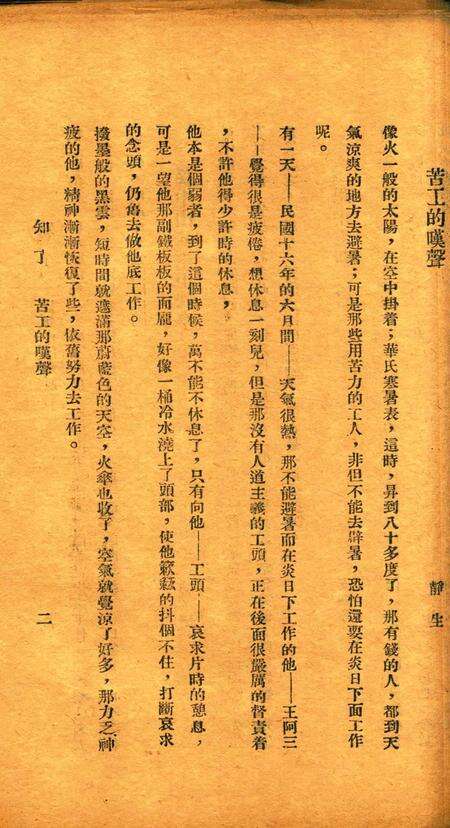 苦工的嘆聲
靜生
像火一般的太陽，在空中掛着；華氏寒暑表，這時，昇到八十多度了，那有錢的人，都到天
氣涼爽的地方去避暑；可是那些用苦力的工人，非但不能去辟暑，恐怕還要在炎日下面工作
呢。
有一天——民國十六年的六日間——天氣很熱，那不能避暑而在炎日下工作的他——王阿三
——覺得很是疲倦，想休息一刻兒，但是那沒有人道主義的工頭，正在後面很嚴厲的督責着
，不許他得少許時的休息，
他本是個弱者，到了這個時候，萬不能不休息了，只有向他——工頭——哀求片時的憩息，
可是一望他那副鐵板板的面龐，好像一桶冷水澆上了頭部，使他簌簌的抖個不住，打斷哀求
的念頭，仍舊去做他底工作。
撥墨般的黑雲，短時間就遮滿那蔚藍色的天空，火傘也收了，空氣就覺涼了好多，那力乏神
疲的他，精神漸漸恢復了些，依舊努力去工作。
知了 苦工的嘆聲 二